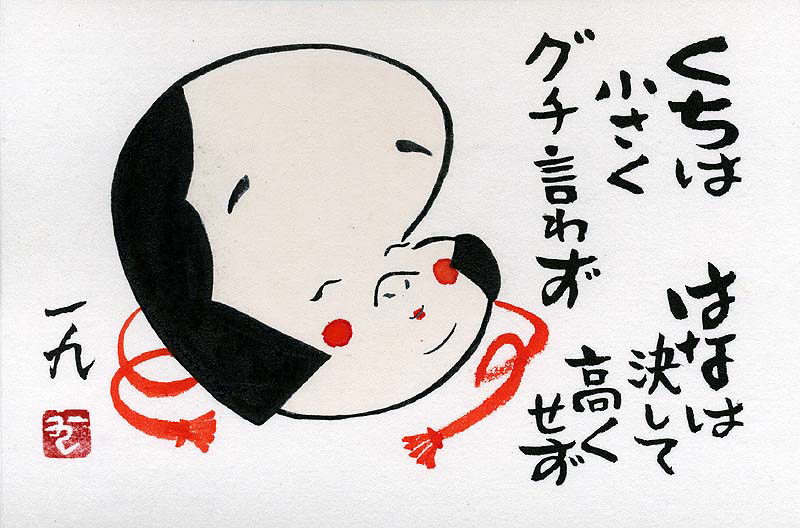 くちは
小さく
グチ言わず
はなは
決して
高くせず
一九